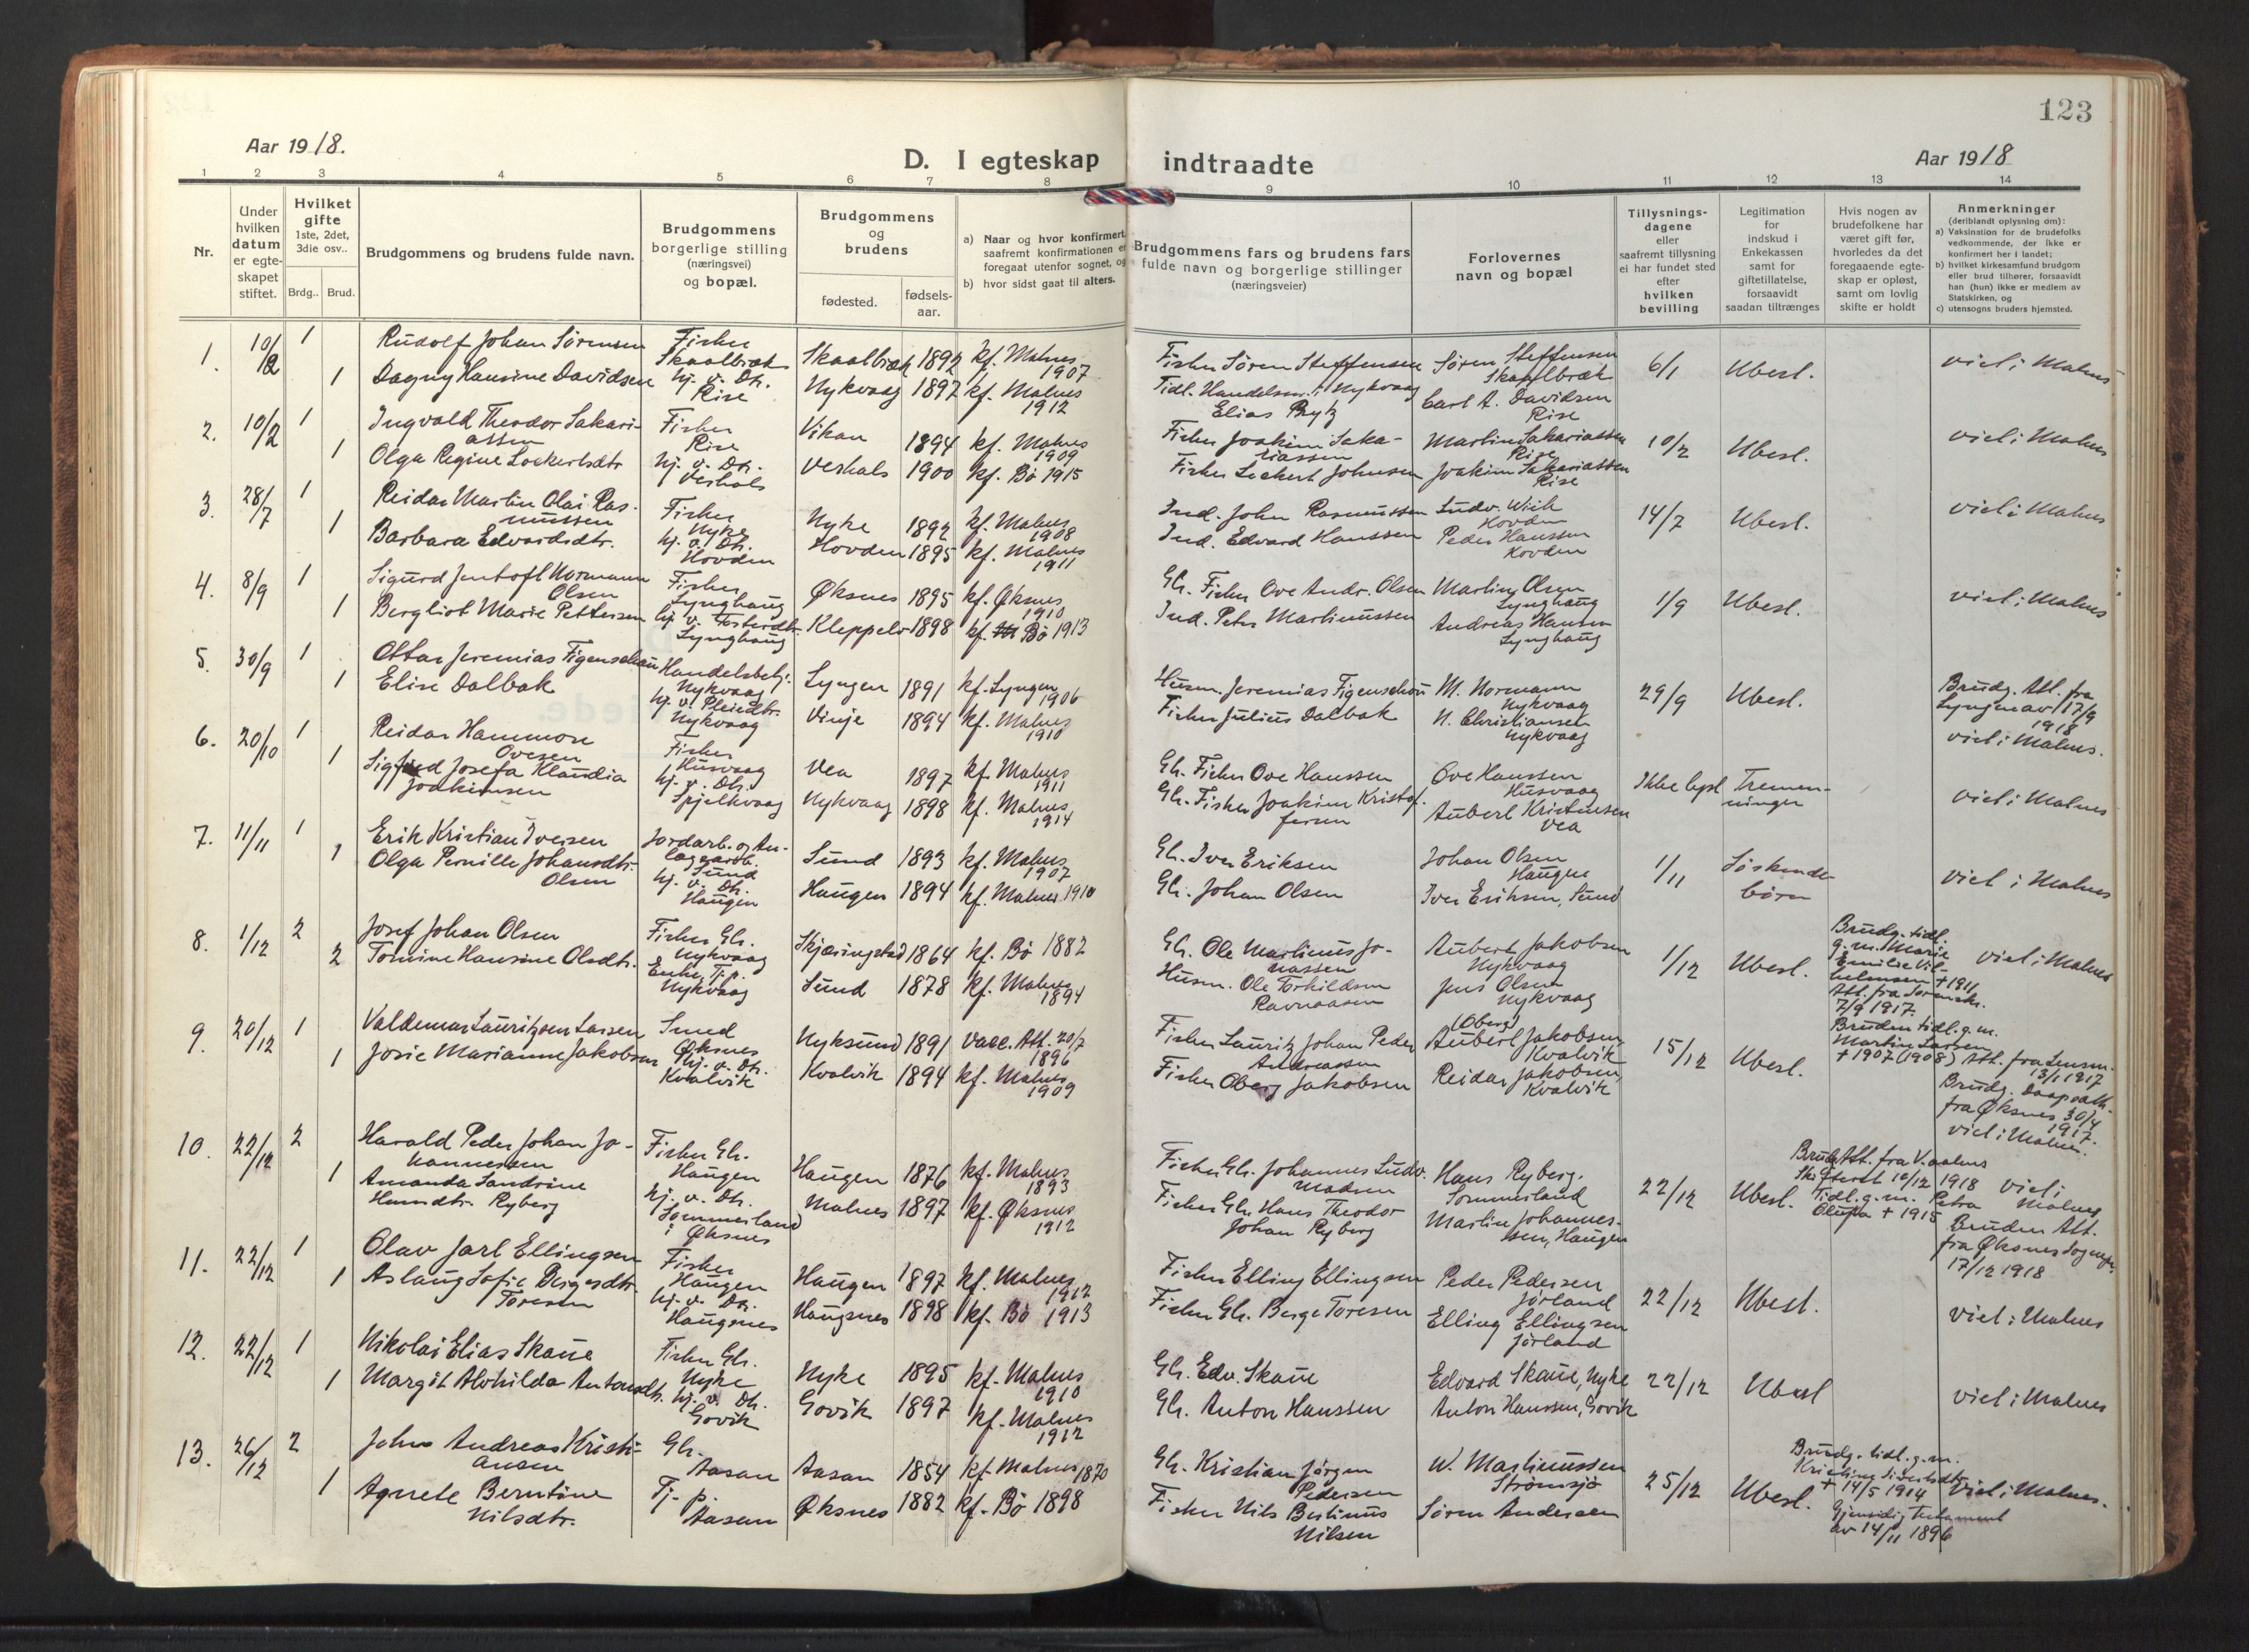 123
Aar 1918.
D. I egteskap indtraadte
Aar 1918
1 2 3 4 5 6 7 8 9 10 11 12 13 14
Nr.
Under hvilken datum er egteskapet stiftet.
Hvilket gifte 1ste, 2det, 3die osv..
Brdg.. Brud.
Brudgommens og brudens fulde navn.
Brudgommens borgerlige stilling (næringsvei) og bopæl.
Brudgommens og brudens
fødested. fødselsaar.
a) Naar og hvor konfirmert, saafremt konfirmationen er foregaat utenfor sognet, og
b) hvor sidst gaat til alters.
Brudgommens fars og brudens fars fulde navn og borgerlige stillinger (næringsveier)
Forlovernes navn og bopæl
Tillysningsdagene eller saafremt tillysning ei har fundet sted efter hvilken bevilling
Legitimation for indskud i Enkekassen samt for giftetillatelse, forsaavidt saadan tiltrænges
Hvis nogen av brudefolkene har været gift før, hvorledes da det foregaaende egteskap er opløst, samt om lovlig skifte er holdt
Anmerkninger (deriblandt oplysning om):
a) Vaksination for de brudefolks vedkommende, der ikke er konfirmert her i landet;
b) hvilket kirkesamfund brudgom eller brud tilhører, forsaavidt han (hun) ikke er medlem av Statskirken, og
c) utensogns bruders hjemsted.
1. 10/2 1 Rudolf Johan Sørensen Fisker Skaalbræk Skaalbræk 1892 kf. Malnes 1907 Fisker Søren Steffensen Søren Steffensen Skaalbræk 6/1 Ubesl. viel i Malnes
1 Dagny Hansine Davidsen hj. v. Dtr. Rise Nykvaag 1897 kf. Malnes 1912 Tidl. Handelsm. i Nykvaag Elias Bryt Carl A. Davidsen Rise
2. 10/2 1 Ingvald Theodor Sakariassen Fisker Rise Vikan 1894 kf. Malnes 1909 Fisker Joakim Sakariassen Martin Sakariassen Rise 10/2 Ubesl. viel i Malnes
1 Olga Regine Lockertsdtr hj. v. Dtr. Verhals Verhals 1900 kf. Bø 1915 Fisker Lockert Johnsen Joakim Sakariassen Rise
3. 28/7 1 Reidar Martin Olai Rasmussen Fisker Nyke Nyke 1892 kf. Malnes 1908 Ind. John Rasmussen Ludv. Wiik Hovden 14/7 Ubesl. viel i Malnes
1 Barbara Edvardsdtr. hj. v. Dtr. Hovden Hovden 1895 kf. Malnes 1911 Ind. Edvard Hanssen Peder Hanssen Hovden
4. 8/9 1 Sigurd Jentoft Normann Olsen Fisker Lynghaug Øksnes 1895 kf. Øksnes 1910 Gbr. Fisker Ove Andr. Olsen Martin Olsen Lynghaug 1/9 Ubesl. viel i Malnes
1 Bergliot Marie Pettersen hj. v. Fosterdtr. Lynghaug Kleppelv 1898 kf. Bø 1913 Ind. Peter Martinussen Andreas Hansen Lynghaug
5. 30/9 1 Ottar Jeremias Figenschou Handelsbetj. Nykvaag Lyngen 1891 kf. Lyngen 1906 Husm. Jeremias Figenschou M. Normann Nykvaag 29/9 Ubesl. Brudg. Att. fra Lyngen av 17/9 1918
1 Elise Dalbak hj. v. Pleiedtr. Nykvaag Vinje 1894 kf. Malnes 1910 Fisker Julius Dalbak N. Christiansen Nykvaag viel i Malnes.
6. 20/10 1 Reidar Hammon Ovesen Fisker Husvaag Vea 1897 kf. Malnes 1911 Gbr. Fisker Ove Hanssen Ove Hanssen Husvaag Ikke lyst Tremenninger viel i Malnes
1 Sigfrid Josefa Klaudia Joakimsen hj. v. Dtr. Spjelkvaag Nykvaag 1898 kf. Malnes 1914 Gbr. Fisker Joakim Kristofersen Aubert Kristensen Vea
7. 11/11 1 Erik Kristian Iversen Jordarb. og Anlægsarb. Sund Sund 1893 kf. Malnes 1907 Gbr. Iver Eriksen Johan Olsen Haugen 1/11 Søskendebørn viel i Malnes
1 Olga Pernille Johansdtr. Olsen hj. v. Dtr. Haugen Haugen 1894 kf. Malnes 1910 Gbr. Johan Olsen Iver Eriksen, Sund
8. 1/12 2 Josef Johan Olsen Fisker Gbr. Nykvaag Skjæringstad 1864 kf. Bø 1882 Gbr. Ole Martinus Jonassen Aubert Jakobsen Nykvaag 1/12 Ubesl. Brudg. tidl. g. m. Marie Emilie Vilhelmsen + 1911 Att. fra Sorenskr. 7/9 1917. viel i Malnes
2 Tomine Hansine Olsdtr. Enke, Tj. p. Nykvaag Sund 1878 kf. Malnes 1894 Husm. Ole Torkildsen Ravnaasen Jens Olsen Nykvaag Bruden tidl. g. m. Martin Larsen + 1907 (1908) Att. fra Lensm. 13/1 1917
9. 20/12 1 Valdemar Lauritzsen Larsen Sund Øksnes Nyksund 1891 Vacc. Att. 20/7 1896 Fisker Lauritz Johan Peder Andreassen (Oberg) Aubert Jakobsen, Kvalvik 15/12 Ubesl. Brudg. Daapsatt. fra Øksnes 30/4 1917.
1 Josie Marianne Jakobsen hj. v. Dtr. Kvalvik Kvalvik 1894 kf. Malnes 1909 Fisker Oberg Jakobsen Reidar Jakobsen, Kvalvik viel i Malnes.
10. 22/12 2 Harald Peder Johan Johannessen Fisker Gbr. Haugen Haugen 1876 kf. Malnes 1893 Fisker Gbr. Johannes Ludv. Madsen Hans Ryberg. Sommerland 22/12 Ubesl. Brudg. Att. fra V.aalens Skifterett 10/12 1918 Tidl. g. m. Petra Olufa + 1915 viel i Malnes
1 Amanda Sandrine Hansdtr. Ryberg hj. v. Dtr. Sommerland i Øksnes Malnes 1897 kf. Øksnes 1912 Fisker Gbr. Hans Theodor Johan Ryberg Martin Johannessen, Haugen Bruden Att. fra Øksnes Sognepr. 17/12 1918
11. 22/12 1 Olav Jarl Ellingsen Fisker Haugen Haugen 1897 kf. Malnes 1912 Fisker Elling Ellingsen Peder Pedersen Jørland 22/12 Ubesl. viel i Malnes
1 Aslaug Sofie Bergesdtr. Toresen hj. v. Dtr. Haugsnes Haugsnes 1898 kf. Bø 1913 Fisker Gbr. Berge Toresen Elling Ellingsen Jørland
12. 22/12 1 Nikolai Elias Skaue Fisker Gbr. Nyke Nyke 1895 kf. Malnes 1910 Gbr. Edv. Skaue Edvard Skaue, Nyke 22/12 Ubesl viel i Malnes
1 Margit Alvhilda Antonsdtr. hj. v. Dtr. Govik Govik 1897 kf. Malnes 1912 Gbr. Anton Hanssen Anton Hanssen, Govik
13. 26/12 2 John Andreas Kristiansen Gbr. Aasan Aasan 1854 kf. Malnes 1870 Gbr. Kristian Jørgen Pedersen W. Martinussen Strømsjø 25/12 Ubesl. Brudg. tidl. g. m. Kristine Sivertsdtr + 14/5 1914 viel i Malnes.
1 Agnete Berntine Nilsdtr. Tj. p. Aasan Øksnes 1882 kf. Bø 1898 Fisker Nils Bertinus Nilsen Søren Andersen Gjensidig Testament av 14/11 1896